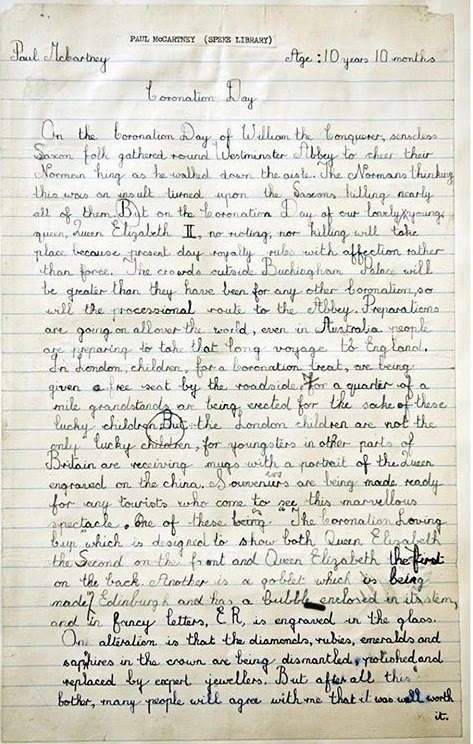 PAUL McCARTNEY (SPEKE LIBRARY)
Paul McCartney Age: 10 years 10 months
Coronation Day
On the Coronation Day of William the Conquerer, senseless
Saxon folk gathered round Westminster Abbey to cheer their
Norman king as he walked down the aisle. The Normans thinking
this was an insult turned upon the Saxons killing nearly
all of them. But on the Coronation Day of our lovely young
queen, Queen Elizabeth II, no rioting nor killing will take
place because present day royalty rules with affection rather
than force. The crowds outside Buckingham Palace will
be greater than they have been for any other Coronation, so
will the processional route to the Abbey. Preparations
are going on all over the world, even in Australia people
are preparing to take that long voyage to England.
In London, children, for a Coronation treat, are being
given a free seat by the roadside. For a quarter of a
mile grandstands are being erected for the sake of these
lucky children. But the London children are not the
only lucky children, for youngsters in other parts of
Britain are receiving mugs with a portrait of the Queen
engraved on the china. Souveniers are being made ready
for any tourists who come to see this marvellous
spectacle, one of these being "The Coronation Loving
Cup" which is designed to show both Queen Elizabeth
the Second on the front and Queen Elizabeth the first
on the back. Another is a goblet which is being
made Edinburgh and has a bubble enclosed in its stem,
and in fancy letters, E.R, is engraved in the glass.
One alteration is that the diamonds, rubies, emeralds and
sapphires in the crown are being dismantled, polished and
replaced by expert jewellers. But after all this
bother, many people will agree with me that it was well worth
it.